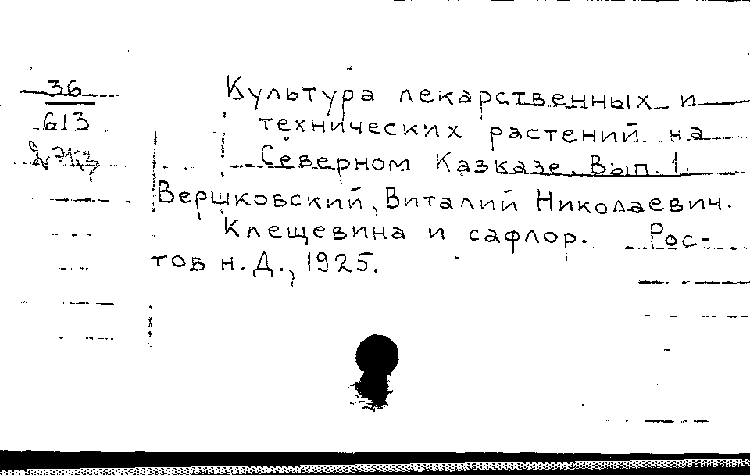 36
613
Культура лекарственных и
технических растений на
Северном Казказе. Вып. 1.
Вершковский, Виталий Николаевич.
Клещевина и сафлор. Рос-
тов н. Д., 1925.